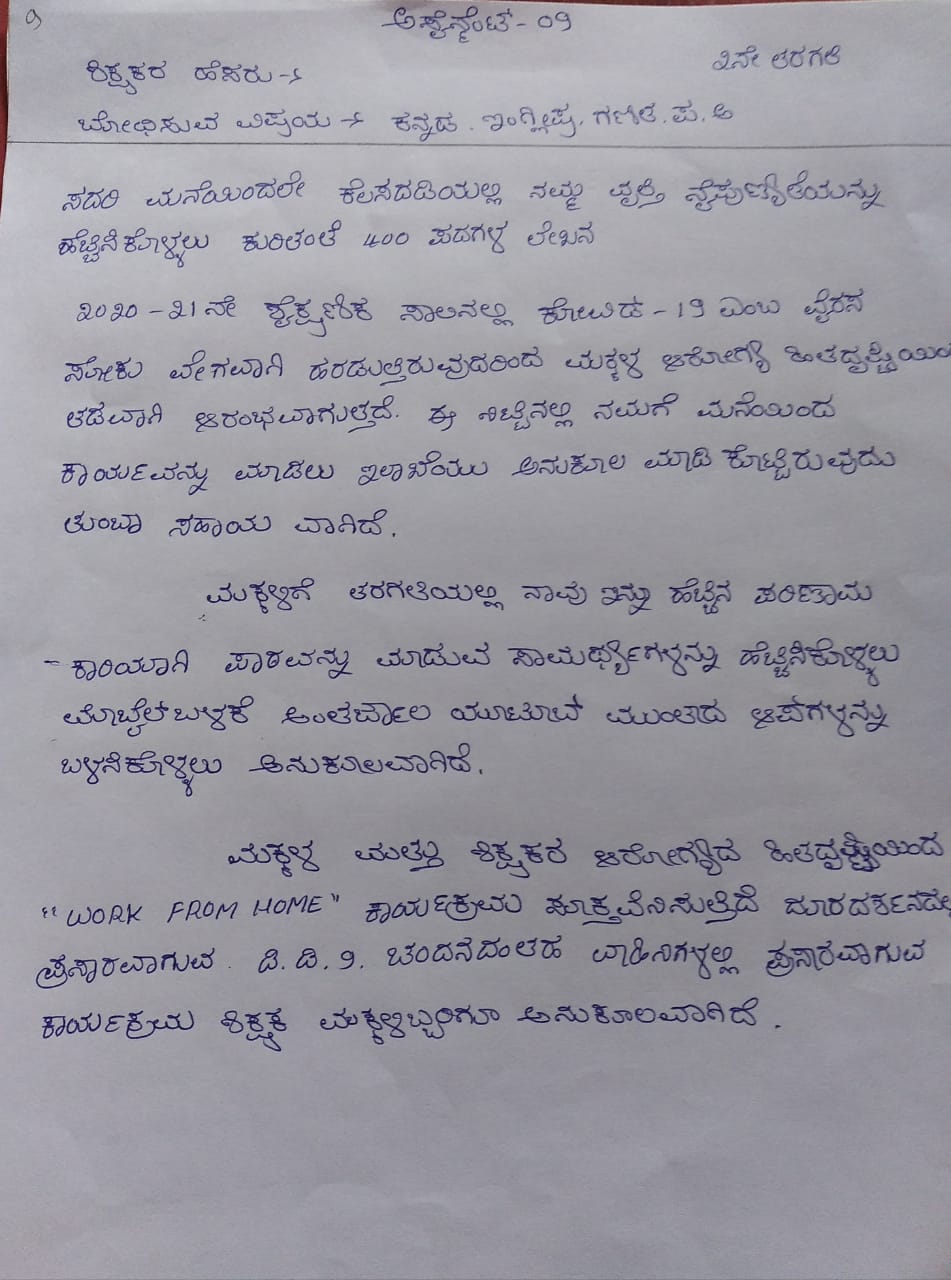 9
ಅಸೈನ್ಮೆಂಟ್ - 09
೩ನೇ ತರಗತಿ
ಶಿಕ್ಷಕರ ಹೆಸರು →
ಬೋಧಿಸುವ ವಿಷಯ → ಕನ್ನಡ. ಇಂಗ್ಲೀಷ. ಗಣಿತ. ಪ. ಅ
ಸದರಿ ಮನೆಯಿಂದಲೇ ಕೆಲಸದಡಿಯಲ್ಲಿ ನಮ್ಮ ವೃತ್ತಿ ನೈಪುಣ್ಯತೆಯನ್ನು
ಹೆಚ್ಚಿಸಿಕೊಳ್ಳಲು ಕುರಿತಂತೆ 400 ಪದಗಳ ಲೇಖನ
2020-21ನೇ ಶೈಕ್ಷಣಿಕ ಸಾಲಿನಲ್ಲಿ ಕೋವಿಡ - 19 ಎಂಬ ವೈರಸ
ಸೋಕು ವೇಗವಾಗಿ ಹರಡುತ್ತಿರುವುದರಿಂದ ಮಕ್ಕಳ ಆರೋಗ್ಯ ಹಿತದೃಷ್ಟಿಯಿಂ
ತಡವಾಗಿ ಆರಂಭವಾಗುತ್ತದೆ. ಈ ನಿಟ್ಟಿನಲ್ಲಿ ನಮಗೆ ಮನೆಯಿಂದ
ಕಾರ್ಯವನ್ನು ಮಾಡಲು ಇಲಾಖೆಯು ಅನುಕೂಲ ಮಾಡಿ ಕೊಟ್ಟಿರುವುದು
ತುಂಬಾ ಸಹಾಯ ವಾಗಿದೆ.
ಮಕ್ಕಳಿಗೆ ತರಗತಿಯಲ್ಲಿ ನಾವು ಇನ್ನು ಹೆಚ್ಚಿನ ಪರಿಣಾಮ
- ಕಾರಿಯಾಗಿ ಪಾಠವನ್ನು ಮಾಡುವ ಸಾಮರ್ಥ್ಯಗಳನ್ನು ಹೆಚ್ಚಿಸಿಕೊಳ್ಳಲು
ಮೊಬೈಲ್ ಬಳಕೆ ಅಂತರ್ಜಾಲ ಯೂಟೂಬ್ ಮುಂತಾದ ಆಪ್‌ಗಳನ್ನು
ಬಳಸಿಕೊಳ್ಳಲು ಅನುಕೂಲವಾಗಿದೆ.
ಮಕ್ಕಳ ಮತ್ತು ಶಿಕ್ಷಕರ ಆರೋಗ್ಯದ ಹಿತದೃಷ್ಟಿಯಿಂದ
"WORK FROM HOME" ಕಾರ್ಯಕ್ರಮ ಸೂಕ್ತವೆನಿಸುತ್ತಿದೆ ದೂರದರ್ಶನದಲಿ
ಪ್ರಸಾರವಾಗುವ. ಡಿ. ಡಿ. 9. ಚಂದನದಂತಹ ವಾಹಿನಿಗಳಲ್ಲಿ ಪ್ರಸಾರವಾಗುವ
ಕಾರ್ಯಕ್ರಮ ಶಿಕ್ಷಕ ಮಕ್ಕಳಿಬ್ಬರಿಗೂ ಅನುಕೂಲವಾಗಿದೆ.